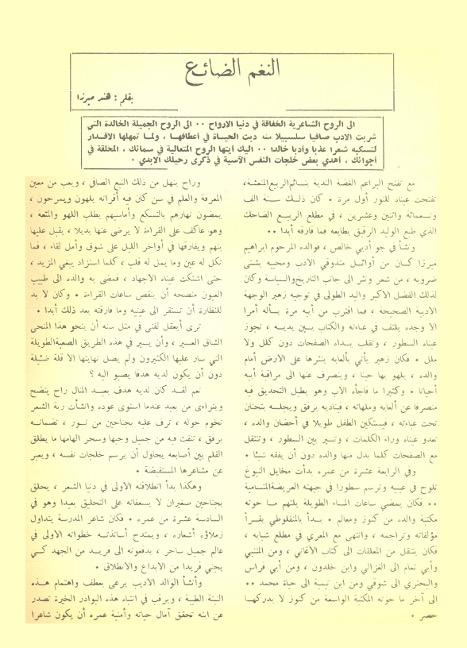 النغم الضائع
بقلم : هند ميرزا
الى الروح الشاعرية الخفاقة في دنيا الارواح ٠٠ الى الروح الجميلة الخالدة التي
شربت الادب صافيا سلسبيلا منذ دبت الحياة في أعطافها ، ولما تمهلها الاقدار
لتسكبه شعرا عذبا وأدبا خالدا ٠٠ اليك ايتها الروح المتعالية في سمائك ، المحلقة في
أجوائك ، أهدي بعض خلجات النفس الآسية في ذكرى رحيلك الابدي ٠
مع تفتح البراعم الغضة الندية بنسائم الربيع المنعشة،
تفتحت عيناه للنور أول مرة ٠ كان ذلك سنة الف
وتسعمائة واثنين وعشرين ، في مطلع الربيع الضاحك
الذي طبع الوليد الرقيق بطابعه فما فارقه أبدا ٠٠
ونشأ في جو أدبي خالص ، فوالده المرحوم ابراهيم
ميرزا كان من أوائل متذوقي الادب ومحبيه بشتى
ضروبه ، من شعر ونثر الى جانب التاريخ والسياسة وكان
لذلك الفضل الاكبر واليد الطولى في توجيه زهير الوجهة
الادبية الصحيحة ، فما اقترب من أبيه مرة يسأله أمرا
الا وجده يلتف في عباءته والكتاب بين يديه ، تجوز
عيناه السطور ، وتقلب يداه الصفحات دون كلل ولا
ملل ٠ فكان زهير يأتي بألعابه ينشرها على الارض أمام
والده ، يلهو بها حينا ، وينصرف عنها الى مراقبة أبيه
أحيانا ٠ وكثيرا ما فاجأه الاب وهو يطيل التحديق فيه
منصرفا عن ألعابه وملهاته ، فيناديه برفق ويجلسه بتحنان
تحت عباءته ، فيستكين الطفل طويلا في أحضان والده ،
تعدو عيناه وراء الكلمات ، وتسير بين السطور ، وتنتقل
مع الصفحات كلما بدل منها والده دون أن يفقه شيئا ٠
وفي الرابعة عشرة من عمره بدأت مخايل النبوغ
تلوح في عينيه وترسم سطورا في جبهته العريضة المتسامية
٠٠ فكان يمضي ساعات المساء الطويلة يلتهم ما حوته
مكتبة والده من كنوز ومعالم ٠ بدأ بالمنفلوطي يقرأ
مؤلفاته وتراجمه ، وانتهى مع المعري في مطلع شبابه ،
فكان ينتقل من المعلقات الى كتاب الاغاني ، ومن المتنبي
وأبي تمام الى الغزالي وابن خلدون ، ومن أبي فراس
والبحتري الى شوقي ومن ابن تيمية الى حياة محمد ٠٠
الى آخر ما حوته المكتبة الواسعة من كنوز لا يدركها
حصر ٠
وراح ينهل من ذلك النبع الصافي ، ويعب من معين
المعرفة والعلم في سن كان فيه أقرانه يلهون ويمرحون ،
يمضون نهارهم بالتسكع وأماسيهم بطلب اللهو والمتعة ،
وهو عاكف على القراءة لا يرضى عنها بديلا ، يقبل عليها
بنهم ويفارقها في أواخر الليل على شوق وأمل لقاء ، فما
تكل له عين وما يمل له قلب ، كلما استزاد يبغي المزيد ،
حتى اشتكت عيناه الاجهاد ، فمضى به والده الى طبيب
العيون فنصحه أن ينقص ساعات القراءة ٠ وكان لا بد
للنظارة أن تستقر الى عينيه وما فارقته بعد ذلك أبدا ٠
ترى أيعقل لفتى في مثل سنه أن ينحو هذا المنحى
الشاق العسير ، وأن يسير في هذه الطريق الصعبة الطويلة
التي سار عليها الكثيرون ولم يصل نهايتها الا قلة ضئيلة
دون أن يكون لديه هدفا يصبو اليه ؟
نعم لقد كان لديه هدف بعيد المنال راح يتضح
ويتراءى من بعيد عندما استوى عوده وانشأت ربة الشعر
تحوم حوله ، ترف عليه بجناحين من نور ، تضمانه
برفق ، تنفث فيه من جميل وحيها وسحر الهامها ما يطلق
القلم بين أصابعه يحاول أن يرسم خلجات نفسه ، ويعبر
عن مشاعرها المستفيضة ٠
وهكذا بدأ انطلاقته الاولى في دنيا الشعر ، يحلق
بجناحين صغيرين لا يسعفانه على التحليق بعيدا وهو في
السادسة عشرة من عمره ٠ فكان شاعر المدرسة يتداول
زملاؤه أشعاره ، ويمتدح أساتذته خطواته الاولى في
عالم جميل ساحر ، يدفعونه الى مزيد من الجهد كي
يجني مزيدا من الابداع والانطلاق ٠
وأنشأ الوالد الاديب يرعى بعطف واهتمام هذه
النبتة الطيبة ، ويرقب في انتباه هذه البوادر الخيرة تصدر
عن ابنه تحقق آمال حياته وأمنية عمره أن يكون شاعرا